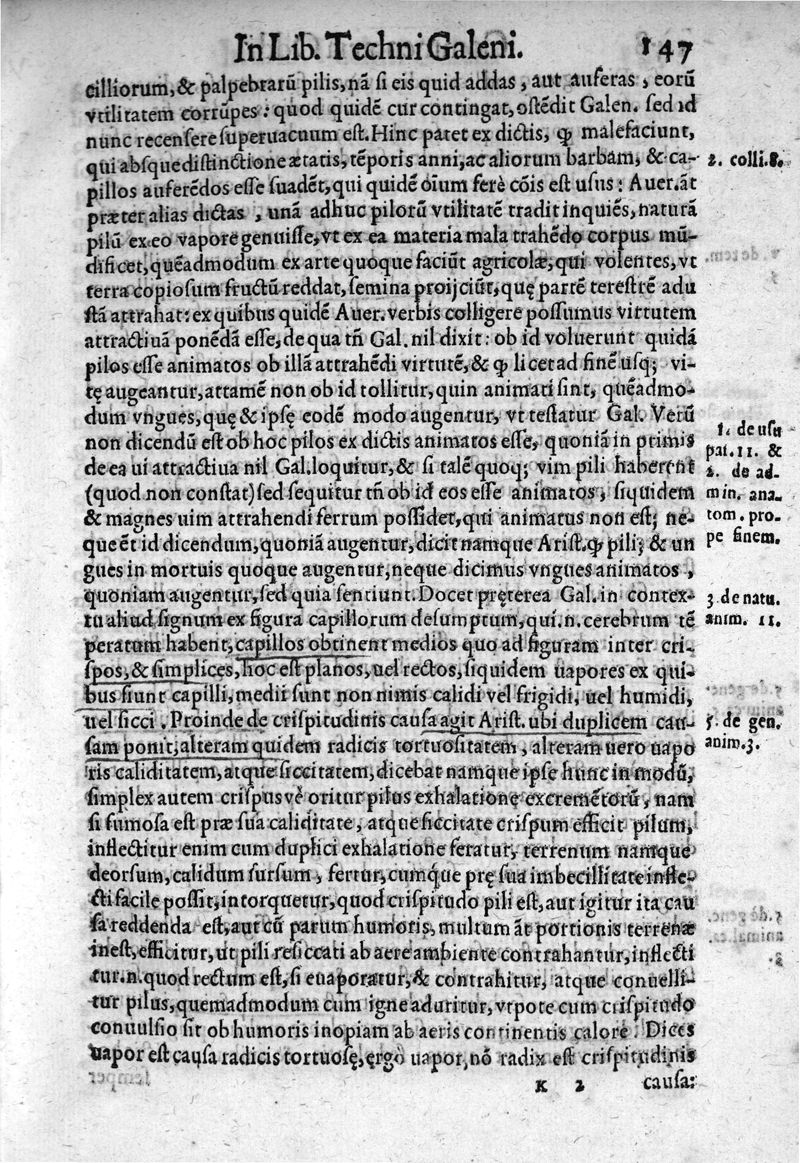 In Lib. Techni Galeni. 147
cilliorum, & palpebrarū pilis, nā si eis quid addas, aut auferas, eorū
vtilitatem corrūpes: quod quidē cur contingat, ostēdit Galen. sed id
nunc recensere superuacuum est. Hinc patet ex dictis, ꝙ malefaciunt,
qui absque distinctione ætatis, tēporis anni, ac aliorum barbam, & ca-
2. colli. 8.
pillos auferēdos esse suadēt, qui quidē oīum ferè cōis est usus: Auer. āt
præter alias dictas, unā adhuc pilorū vtilitatē tradit inquiēs, naturā
pilū ex eo vapore genuisse, vt ex ea materia mala trahēdo corpus mū-
dificet, quēadmodum ex arte quoque faciūt agricolæ, qui volentes, vt
terra copiosum fructū reddat, semina proijciūt, quę partē terestrē adu
stā attrahat: ex quibus quidē Auer. verbis colligere possumus virtutem
attractiuā ponēdā esse, de qua tñ Gal. nil dixit: ob id voluerunt quidā
pilos esse animatos ob illā attrahēdi virtutē, & ꝙ licet ad finē usq; vi-
tę augeantur, attamē non ob id tollitur, quin animati sint, quēadmo-
dum vngues, quę & ipsę eodē modo augentur, vt testatur Gal. Verū
1. de usu
non dicendū est ob hoc pilos ex dictis animatos esse, quoniā in primis
par. 11. &
de ea ui attractiua nil Gal. loquitur, & si talē quoq; vim pili haberent
2. de ad-
(quod non constat) sed sequitur tñ ob id eos esse animatos, siquidem
min. ana-
& magnes uim attrahendi ferrum possidet, qui animatus non est; ne-
tom. pro-
que ēt id dicendum, quoniā augentur, dicit namque Arist. ꝙ pili; & un
pe finem.
gues in mortuis quoque augentur, neque dicimus vngues animatos,
quoniam augentur, sed quia sentiunt. Docet pręterea Gal. in contex-
3. de natu.
tu aliud signum ex figura capillorum desumptum, qui. n. cerebrum tē
anim. 11.
peratum habent, capillos obtinent medios quo ad figuram inter cri-
spos, & simplices, hoc est planos, uel rectos, siquidem uapores ex qui-
bus fiunt capilli, medii sunt non nimis calidi vel frigidi, uel humidi,
uel sicci. Proinde de crispitudinis causa agit Arist. ubi duplicem cau-
5. de gen.
sam ponit, alteram quidem radicis tortuositatem, alteram uero uapo
anim. 3.
ris caliditatem, atque siccitatem, dicebat namque ipse hunc in modū,
simplex autem crispus vè oritur pilus exhalatione excremētorū, nam
si fumosa est præ sua caliditate, atque siccitate crispum efficit pilum,
inflectitur enim cum duplici exhalatione feratur, terrenum namque
deorsum, calidum sursum, fertur, cumque prę sua imbecillitate infle-
cti facile possit, intorquetur, quod crispitudo pili est, aut igitur ita cau
sa reddenda est, aut cū parum humoris, multum āt portionis terrenæ
inest, efficitur, ut pili resiccati ab aere ambiente contrahantur, inflecti
tur. n. quod rectum est, si euaporatur, & contrahitur, atque conuelli-
tur pilus, quemadmodum cum igne aduritur, vtpote cum crispitudo
conuulsio sit ob humoris inopiam ab aeris continentis calore. Dices
uapor est causa radicis tortuosę, ergo uapor, nō radix est crispitudinis
K 2 causa: